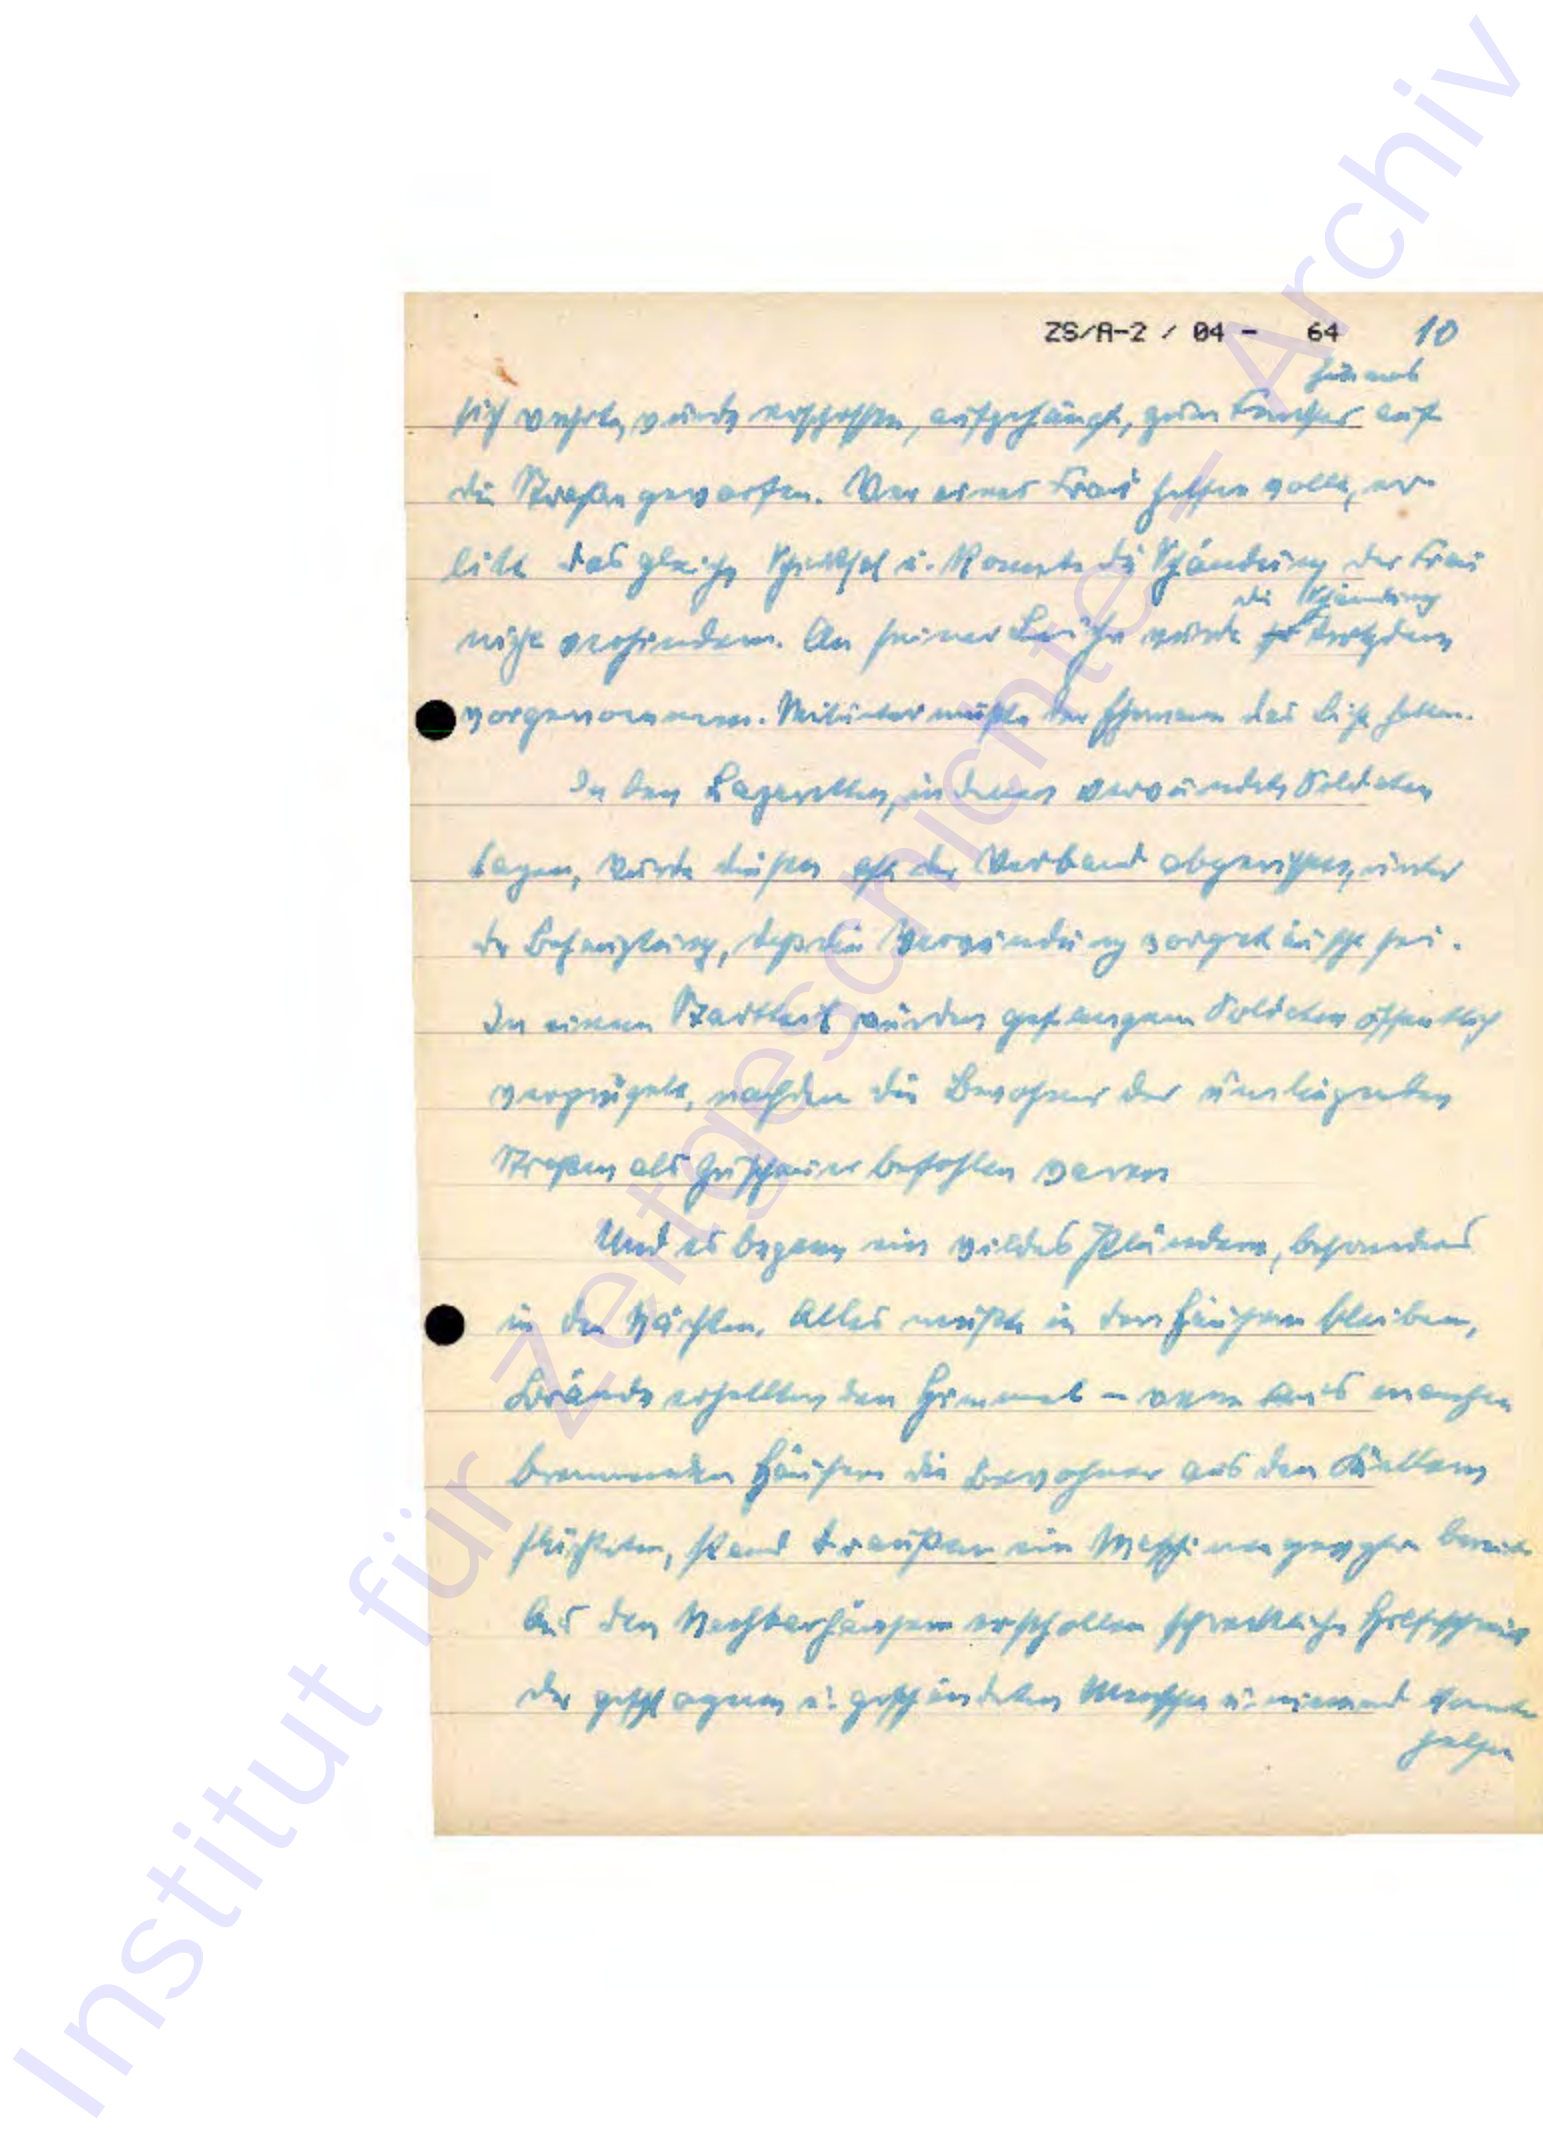 ZS/A-2 / 04 - 64 10
hinaus
sich wehrte, wurde erschossen, aufgehängt, zum Fenster auf
die Straße geworfen. Wer einer Frau helfen wollte, er-
litt das gleiche Schicksal u. konnte die Schändung der Frau
die Schändung
nicht verhindern. An seiner Leiche wurde trotzdem
vorgenommen. Mitunter mußte der Ehemann das Licht halten.
In den Lazaretten, in denen verwundete Soldaten
lagen, wurde diesen oft der Verband abgerissen, unter
der Behauptung, daß die Verwundung vorgetäuscht sei.
In einem Stadtteil wurden gefangene Soldaten öffentlich
verprügelt, nachdem die Bewohner der umliegenden
Straßen als Zuschauer befohlen waren
Und es begann ein wildes Plündern, besonders
in den Nächten. Alles mußte in den Häusern bleiben,
Brände erhellten den Himmel – wenn aus manchen
brennenden Häusern die Bewohner aus den Kellern
flüchteten, stand draußen ein Maschinengewehr bereit
Aus den Nachbarhäusern erschollen schreckliche Hilfeschreie
der geschlagenen u. geschändeten Menschen u. niemand konnte
helfen
Institut für Zeitgeschichte - Archiv